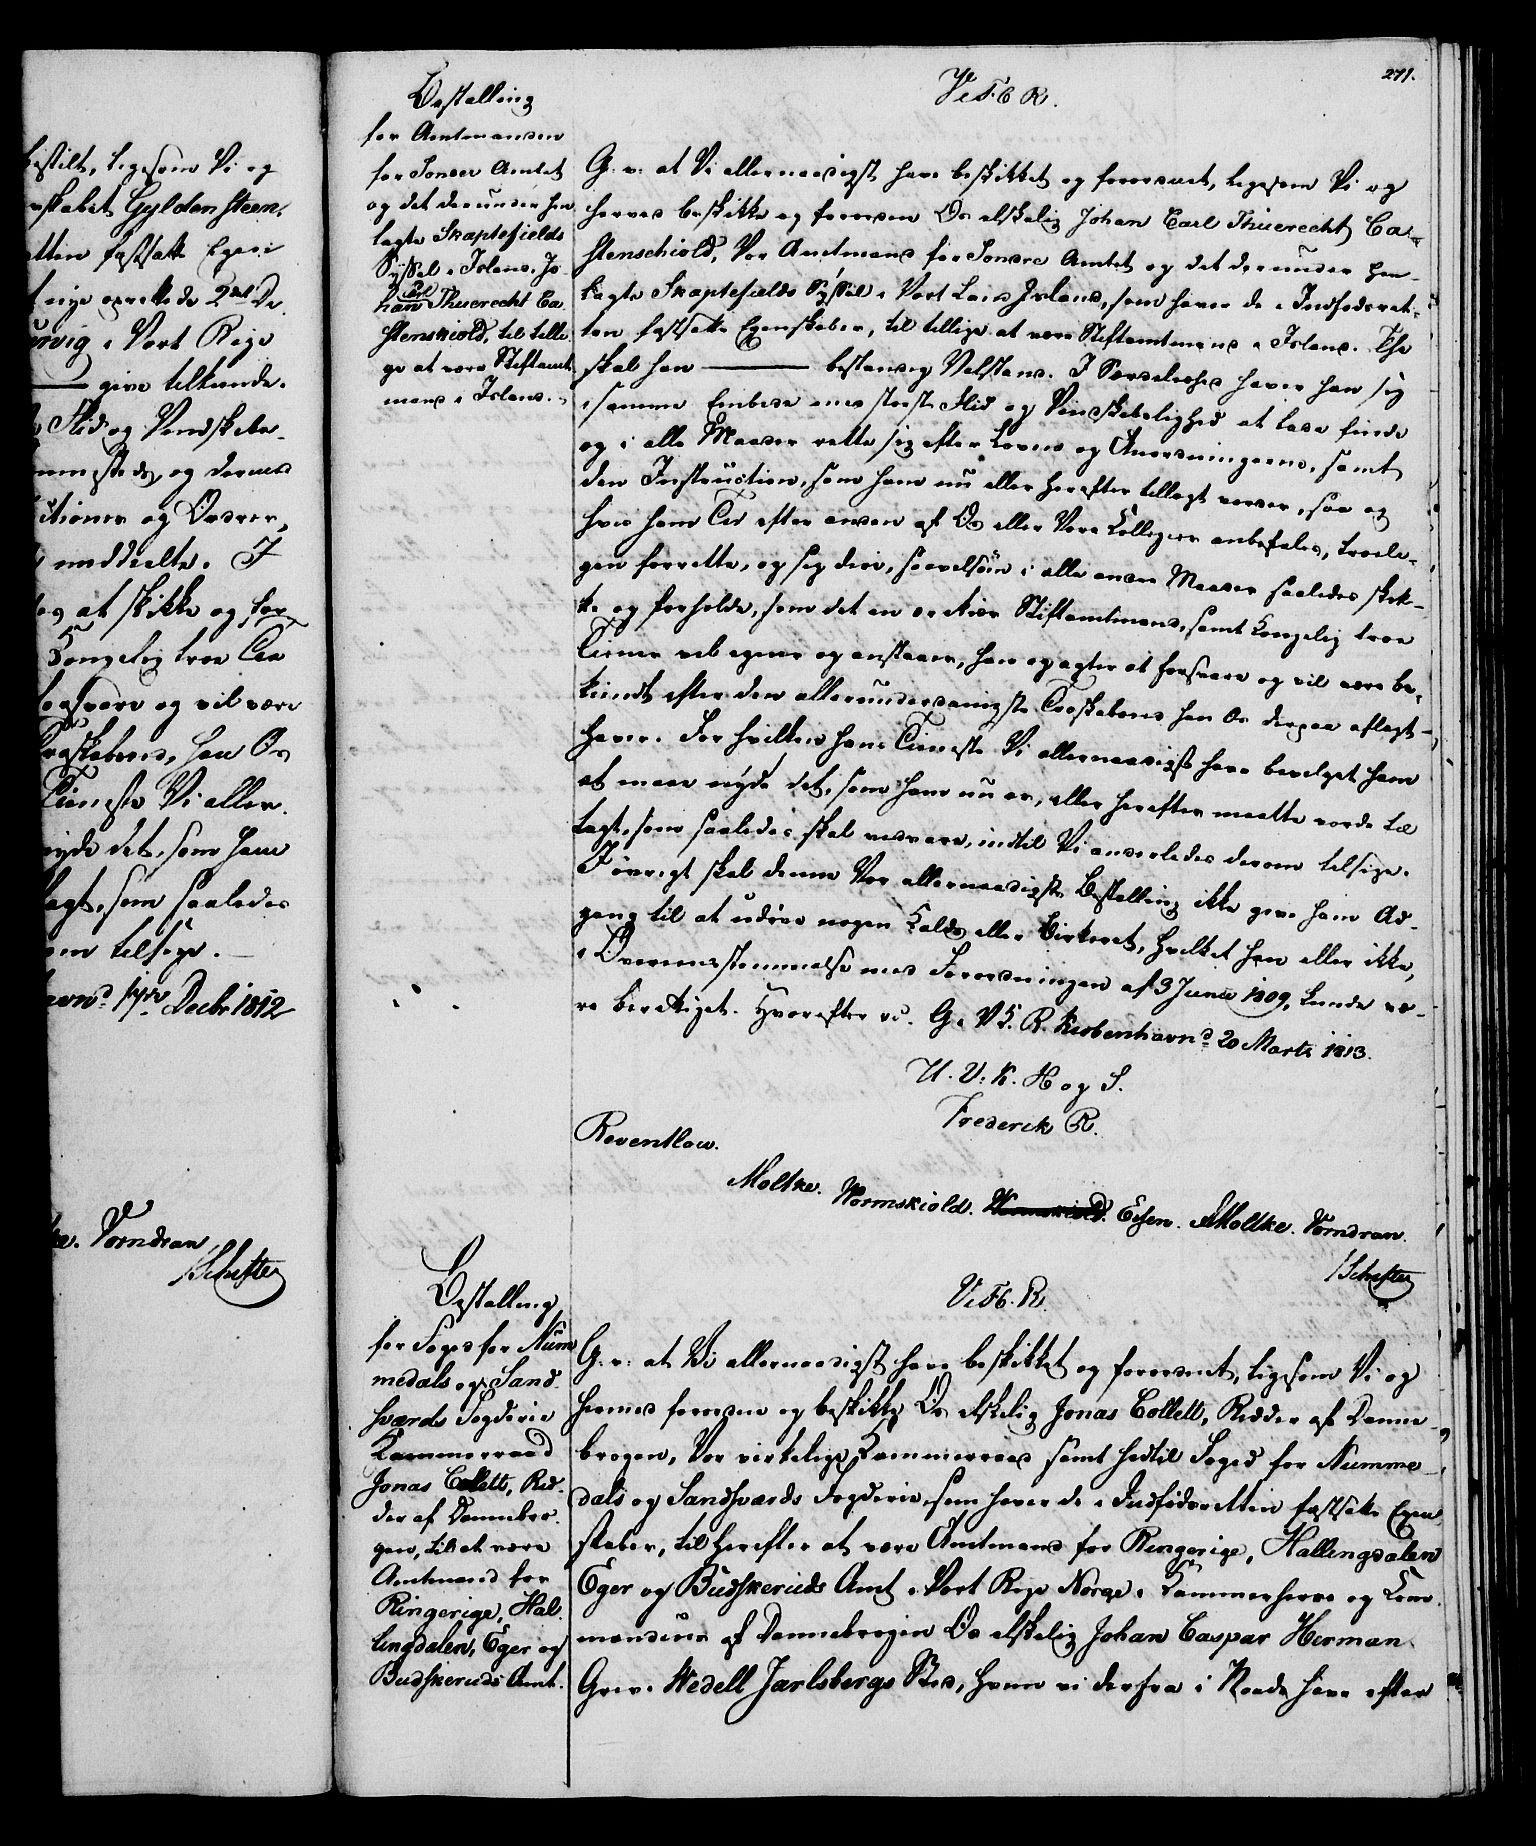 bestilt, ligesom Vi og
skabet Gyldensteen
etten fastsatte Egen
nye oprettede 2de De
urvig i Vort Rige
give tilkiende.
Flid og Vindskabe
steds, og dermed
uctioner og Ordrer,
meddeelte. I
at skikke og for
Kongelig troe Tie
forsvare og vil være
Troskabseed, han Os
Tieneste Vi aller
nyde det, som ham
lagt, som saaledes
om tilsige.
havn d. 19de Decbr 1812
Vorndran
/Schifter
271.
Bestalling
for Amtmanden
for Sonder Amtet
og det derunder hen
lagte Skaptefields
Syssel i Island, Jo
han Carl Thuerecht Ca
stenskiold, til tilli
ge at være Stiftamt
mand i Island.
V. F. 6 R.
G. v: at Vi allernaadigst have beskikket og forordnet, ligesom Vi og
herved beskikke og forordne Os elskelig Johan Carl Thuerecht Ca-
stenschiold, Vor Amtmand for Sondre Amtet og det derunder hen-
lagte Skaptefields Syssel i Vort Land Island, som haver de i Indfødsret-
ten fastsatte Egenskaber, til tillige at være Stiftamtmand i Island. Thi
skal han ——— bestandig Velstand. I Særdeleshed haver han sig
i samme Embede med største Flid og Vindskabelighed at lade finde
og i alle Maader rette sig efter Loven og Anordningerne, samt
den Instruction, som ham nu eller herefter tillagt vorder, saa og
hvis ham Tid efter anden af Os eller Vore Collegier anbefales, troeli-
gen forrette, og sig deri, saavelsom i alle andre Maader saaledes skik-
ke og forholde, som det en oc ærekiær Stiftamtmand, samt Kongelig troe
Tiener vel egner og anstaaer, han og agter at forsvare og vil være be-
kiendt efter den allerunderdanigste Troskabseed han Os derpaa aflagt
haver. For hvilken hans Tieneste Vi allernaadigst have bevilget ham
at maae nyde det, som ham nu er, eller herefter maatte vorde til
lagt, som saaledes skal vedvare, indtil Vi anderledes derom tilsige.
I øvrigt skal denne Vor allernaadigste Bestalling ikke give ham Ad-
gang til at udøve nogen Kalds eller Birkeret, hvilket han eller ikke,
i Overeensstemmelse med Forordningen af 9 Juni 1809, kunde væ-
re berettiget. Hvorefter v.. G. V. K. R. Kiøbenhavn d. 20 Marts 1813.
U. V: K. H og S.
Frederik R.
Reventlow.
Moltke. Wormskiold. Essen. AMoltke. Vorndran.
/Schifter
Bestalling
for Foged for Num
medals og Sand
sværds Fogderie
Kammerraad
Jonas Collett, Rid-
der af Dannebro-
gen, til at være
Amtmand for
Ringerige, Hal-
lingdalen, Eger og
Budskeruds Amt.
V. F. 6. R.
G. v: at Vi allernaadigst have beskikket og forordnet, ligesom Vi og
hermed forordne og beskikke Os elskelig Jonas Collett, Ridder af Danne-
brogen, Vor virkelige Kammerraad samt hidtil Foged for Numme-
dals og Sandsværds Fogderie, som haver de i Indfødsretten fastsatte Egen-
skaber, til herefter at være Amtmand for Ringerige, Hallingdalen
Eger og Budskeruds Amt i Vort Rige Norge i Kammerherre og Com
mandeur af Dannebrogen Os elskelig Johan Caspar Herman
Greve Wedell Jarlsbergs Sted, hvem vi derfra i Naade have efter